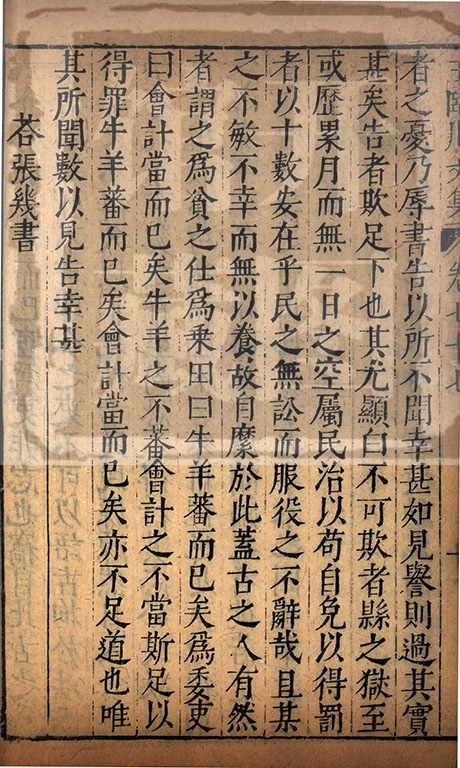 王臨川文集 卷七十七
者之憂乃辱書告以所不聞幸甚如見譽則過其實
甚矣告者欺足下也其尤顯白不可欺者縣之獄至
或歷累月而無一日之空屬民治以苟自免以得罰
者以十數安在乎民之無訟而服役之不辭哉且某
之不敏不幸而無以養故自縻於此蓋古之人有然
者謂之為貧之仕為乗田曰牛羊蕃而巳矣為委吏
曰會計當而巳矣牛羊之不蕃會計之不當斯足以
得罪牛羊蕃而巳矣會計當而巳矣亦不足道也唯
其所聞數以見告幸甚
荅張幾書